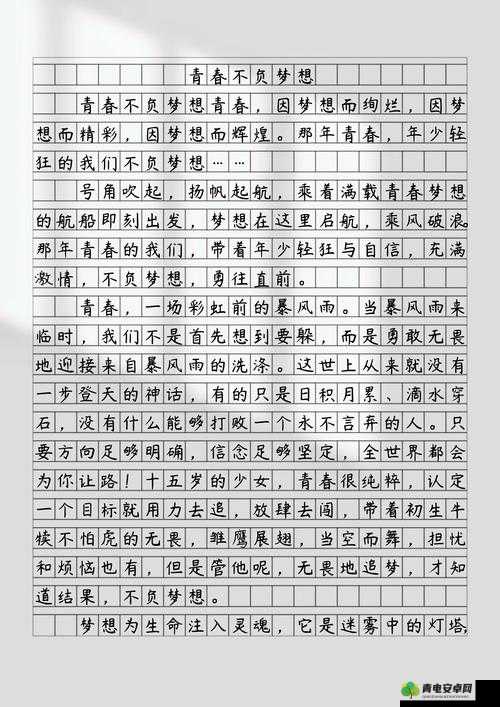 青春不负梦想
青春不负梦想青春，因梦想而绚烂，因梦
想而精彩，因梦想而辉煌。那年青春，年少轻
狂的我们不负梦想……
号角吹起，扬帆起航，乘着满载青春梦想
的航船即刻出发，梦想在这里启航，乘风破浪。
那年青春的我们，带着年少轻狂与自信，充满
激情，不负梦想，勇往直前。
青春，一场彩虹前的暴风雨。当暴风雨来
临时，我们不是首先想到要躲，而是勇敢无畏
地迎接来自暴风雨的洗涤。这世上从来就没有
一步登天的神话，有的只是日积月累、滴水穿
石，没有什么能够打败一个永不言弃的人。只
要方向足够明确，信念足够坚定，全世界都会
为你让路！十五岁的少女，青春很纯粹，认定
一个目标就用力去追，放肆去闯，带着初生牛
犊不怕虎的无畏，雏鹰展翅，当空而舞，担忧
和烦恼也有，但是管他呢，无畏地追梦，才知
道结果，不负梦想。
梦想为生命注入灵魂，它是迷雾中的灯塔，
青电安卓网